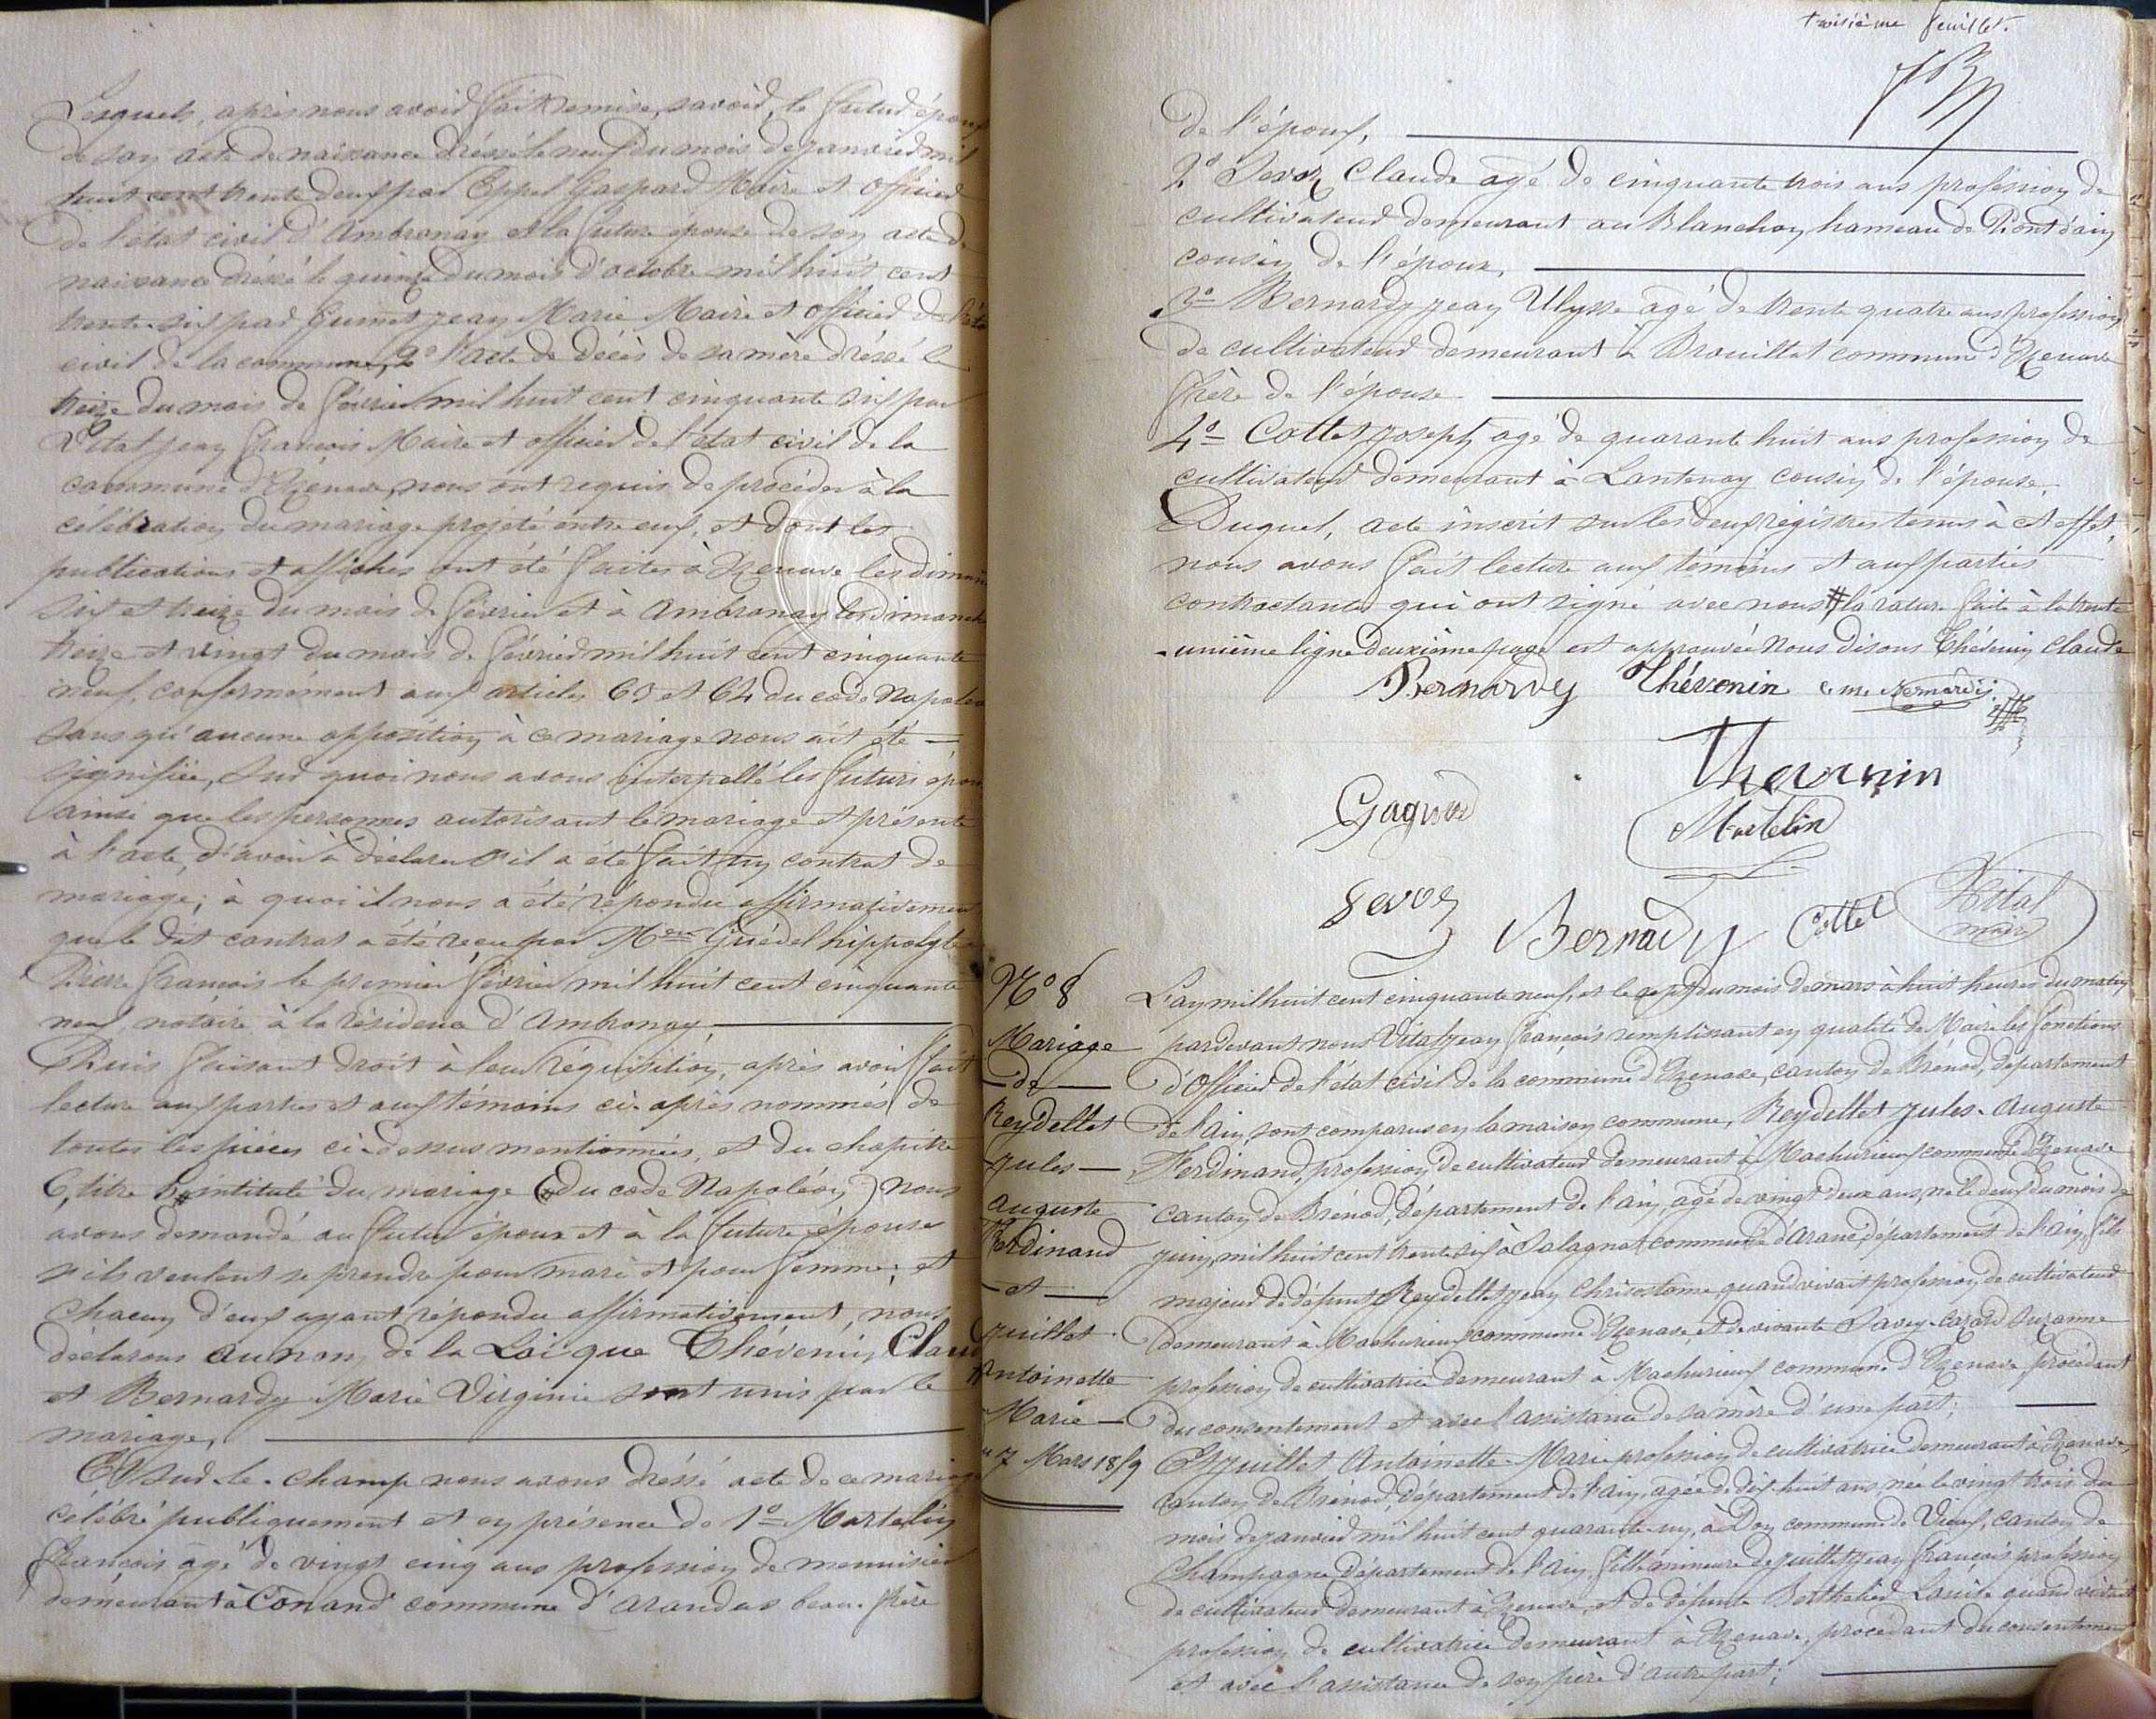 Lesquels, après nous avoir fait remise, savoir, le futur époux
de son acte de naissance dréssé le neuf du mois de janvier mil
huit cent trente deux par Eppel Gaspard Maire et Officier
de l'état civil d'Ambronay et la future épouse de son acte de
naissance dréssé le quinze du mois d'octobre mil huit cent
trente-six par Gumet jean Marie Maire et officier de l'état
civil de la commune, 2° l'acte de décès de sa mère dréssé le
treize du mois de février mil huit cent cinquante six par
Vital jean françois Maire et officier de l'état civil de la
commune d'Izenave, nous ont requis de procéder à la
célébration du mariage projeté entre eux, et dont les
publications et affiches ont été faites à Izenave les diman
six et treize du mois de février et à Ambronay les dimanch
treize et vingt du mois de février mil huit cent cinquante
neuf, conformément aux articles 63 et 64 du code Napoléon
sans qu'aucune opposition à ce mariage nous ait été —
signifiée, sur quoi nous avons interpellé les futurs épou
ainsi que les personnes autorisant le mariage et présente
à l'acte, d'avoir à déclarer s'il a été fait un contrat de
mariage; à quoi il nous a été répondu affirmativement
que le dit contrat a été reçu par Guédel hippolyte
Pierre françois le premier février mil huit cent cinquante
neuf notaire à la résidence d'Ambronay
Puis faisant droit à leur réquisition, après avoir fait
lecture aux parties et aux témoins ci-après nommés de
toutes les pièces ci-dessus mentionnées, et du chapitre
6, titre 5 intitulé du mariage (du code Napoléon) nous
avons demandé au futur époux et à la future épouse
s'ils veulent se prendre pour mari et pour femme; et
chacun d'eux ayant répondu affirmativement, nous
déclarons au nom de la Loi que Thévenin Claud
et Bernardy Marie Virginie sont unis par le
mariage,
Et sur-le-champ nous avons dréssé acte de ce mariage
célébré publiquement et en présence de 1° Martelin
François âgé de vingt cinq ans profession de menuisier
demeurant à Conand commune d'Arandas beau-frère
troisième feuillet.
de l'époux,
2° Sevoz Claude agé de cinquante trois ans profession de
cultivateur demeurant au Blanchon hameau de Pont d'ain
cousin de l'époux,
3° Bernardy jean Ulysse agé de trente quatre ans profession
de cultivateur demeurant à Brouillat commune d'Izenave
frère de l'épouse
4° Cottet joseph agé de quarante huit ans profession de
cultivateur demeurant à Lantenay cousin de l'épouse.
Duquel, acte inscrit sur les deux régistres tenus à cet effet,
nous avons fait lecture aux témoins et aux parties
contractantes qui ont signé avec nous # la rature faite à la trente
-unième ligne deuxième page est approuvée Nous disons Thévenin Claude
Bernardy Thévenin c. m. Bernardy
Thevenin
Gagnod
Martelin
Sevoz
Bernardy Cottet Vital
maire
N° 8
Mariage
— de —
Reydellet
jules —
Auguste
Ferdinand
— et —
juillet
Antoinette
Marie —
7 Mars 1859
L'an mil huit cent cinquante neuf, et le sept du mois de mars à huit heures du matin
pardevant nous Vital jean françois remplissant en qualité de Maire les fonctions
d'Officier de l'état civil de la commune d'Izenave, canton de Brénod, département
de l'ain, sont comparus en la maison commune, Reydellet jules-Auguste
Ferdinand, profession de cultivateur demeurant à Machurieux commune d'Izenave
canton de Brénod, département de l'ain, agé de vingt deux ans, né le deux du mois de
juin mil huit cent trente six à Salagnat commune d'Aranc, département de l'ain, fils
majeur de défunt Reydellet jean Chrisostôme quand vivait profession de cultivateur
demeurant à Machurieux commune d'Izenave, et de vivante Savey-Cazard Suzanne
profession de cultivatrice demeurant à Machurieux commune d'Izenave, procédant
du consentement et avec l'assistance de sa mère d'une part;
Et juillet Antoinette-Marie profession de cultivatrice demeurant à Izenave,
canton de Brénod, département de l'ain, agée de dix-huit ans, née le vingt trois du
mois de janvier mil huit cent quarante-un, à Don commune de Vieux, canton de
Champagne département de l'ain, fille mineure de juillet jean françois profession
de cultivateur demeurant à Izenave, et de défunte Berthelier Louise quand vivait
profession de cultivatrice demeurant à Izenave, procédant du consentement
et avec l'assistance de son père d'autre part;